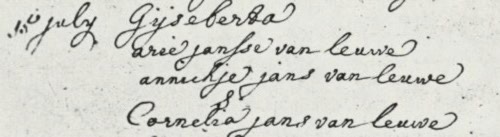 15 july Gijseberta
arie jansse van leuwe
annichje jans van leuwe
&
Cornelia jans van leuwe